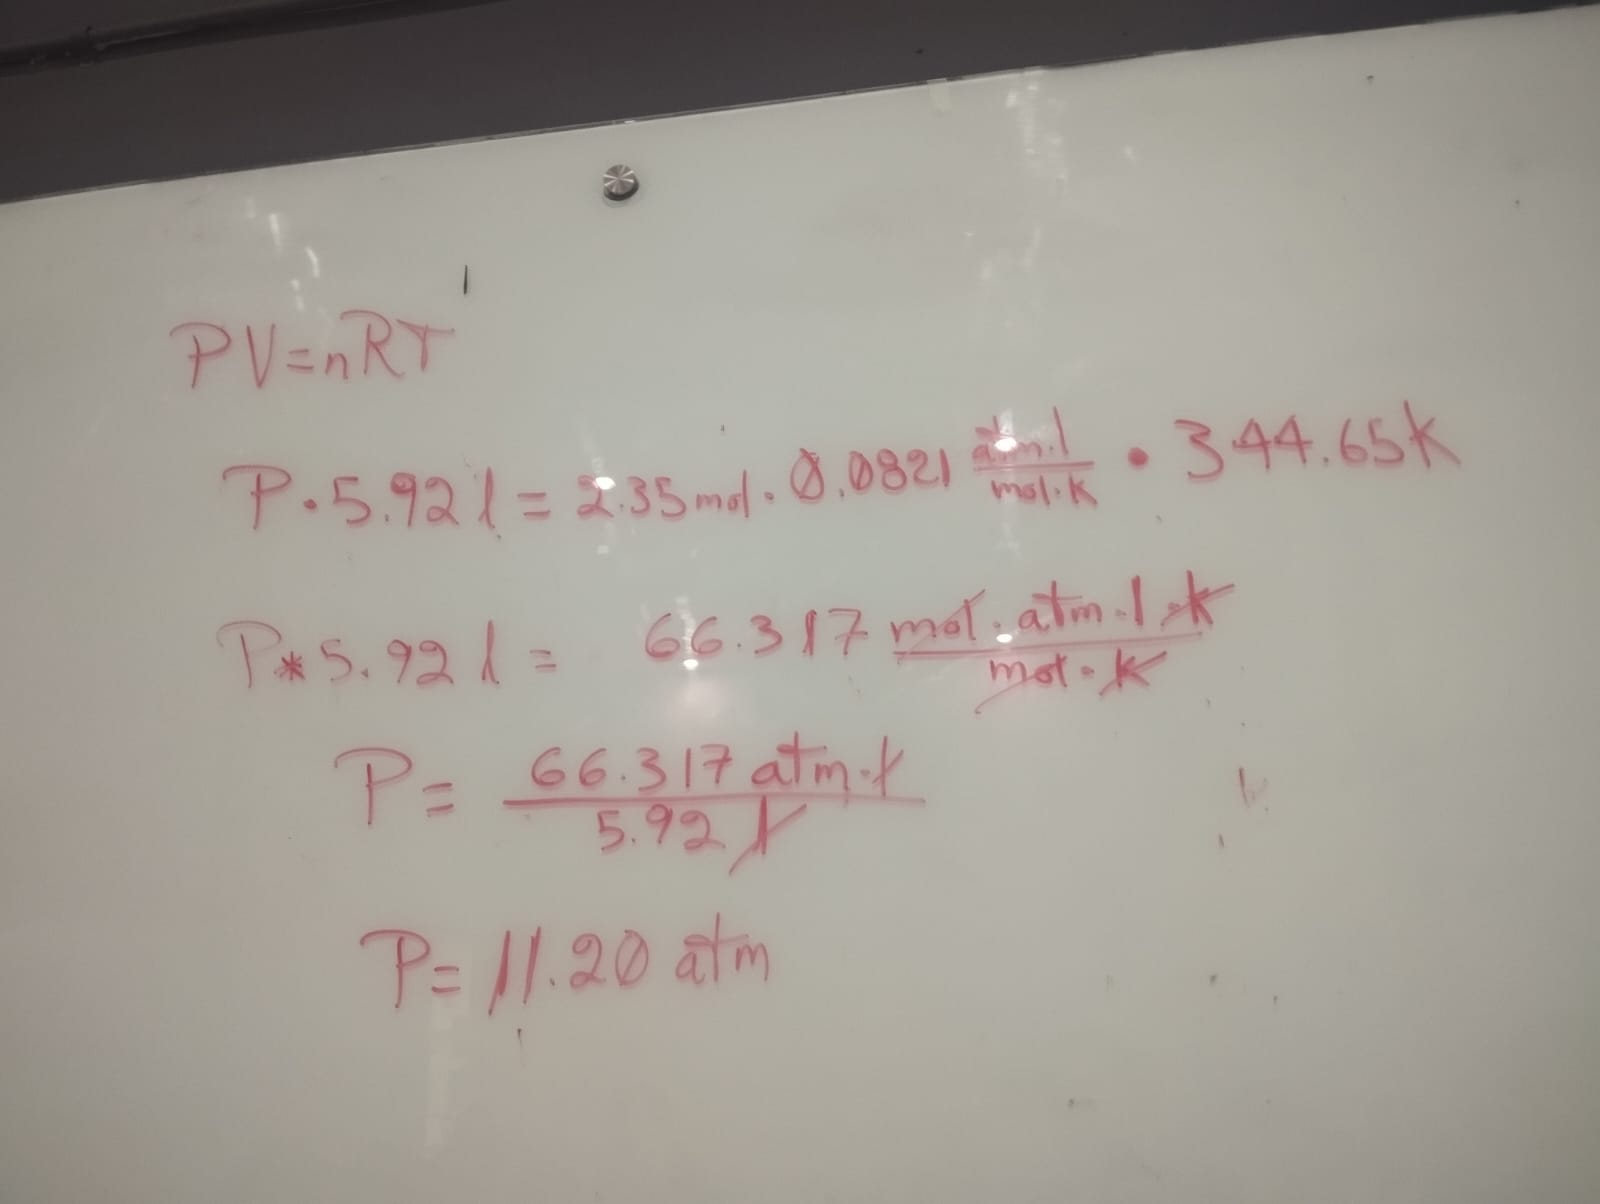 PV=nRT
P·5.92 l = 2.35 mol · 0.0821 atm·l/mol·K • 344.65K
P*5.92 l = 66.317 mol·atm·l·K/mol·K
P= 66.317 atm·l/5.92 l
P= 11.20 atm